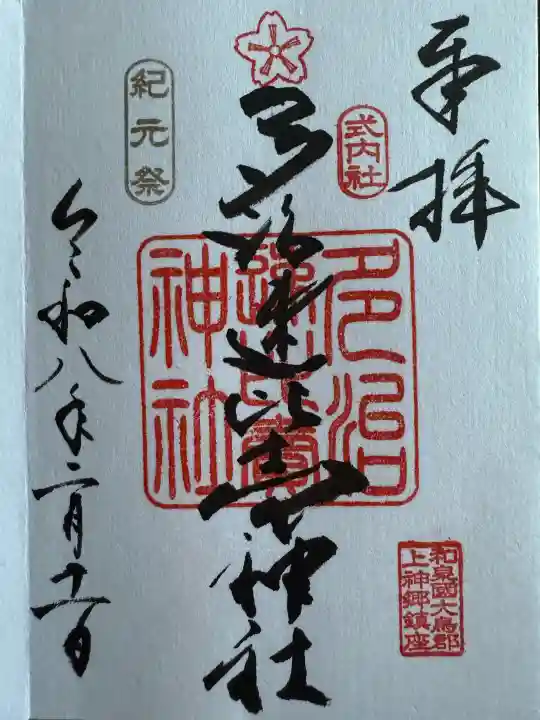 奉拝
式内社
多治速比売神社
多治
速比賣
神社
和泉國大鳥郡
上神郷鎮座
紀元祭
令和八年二月十一日